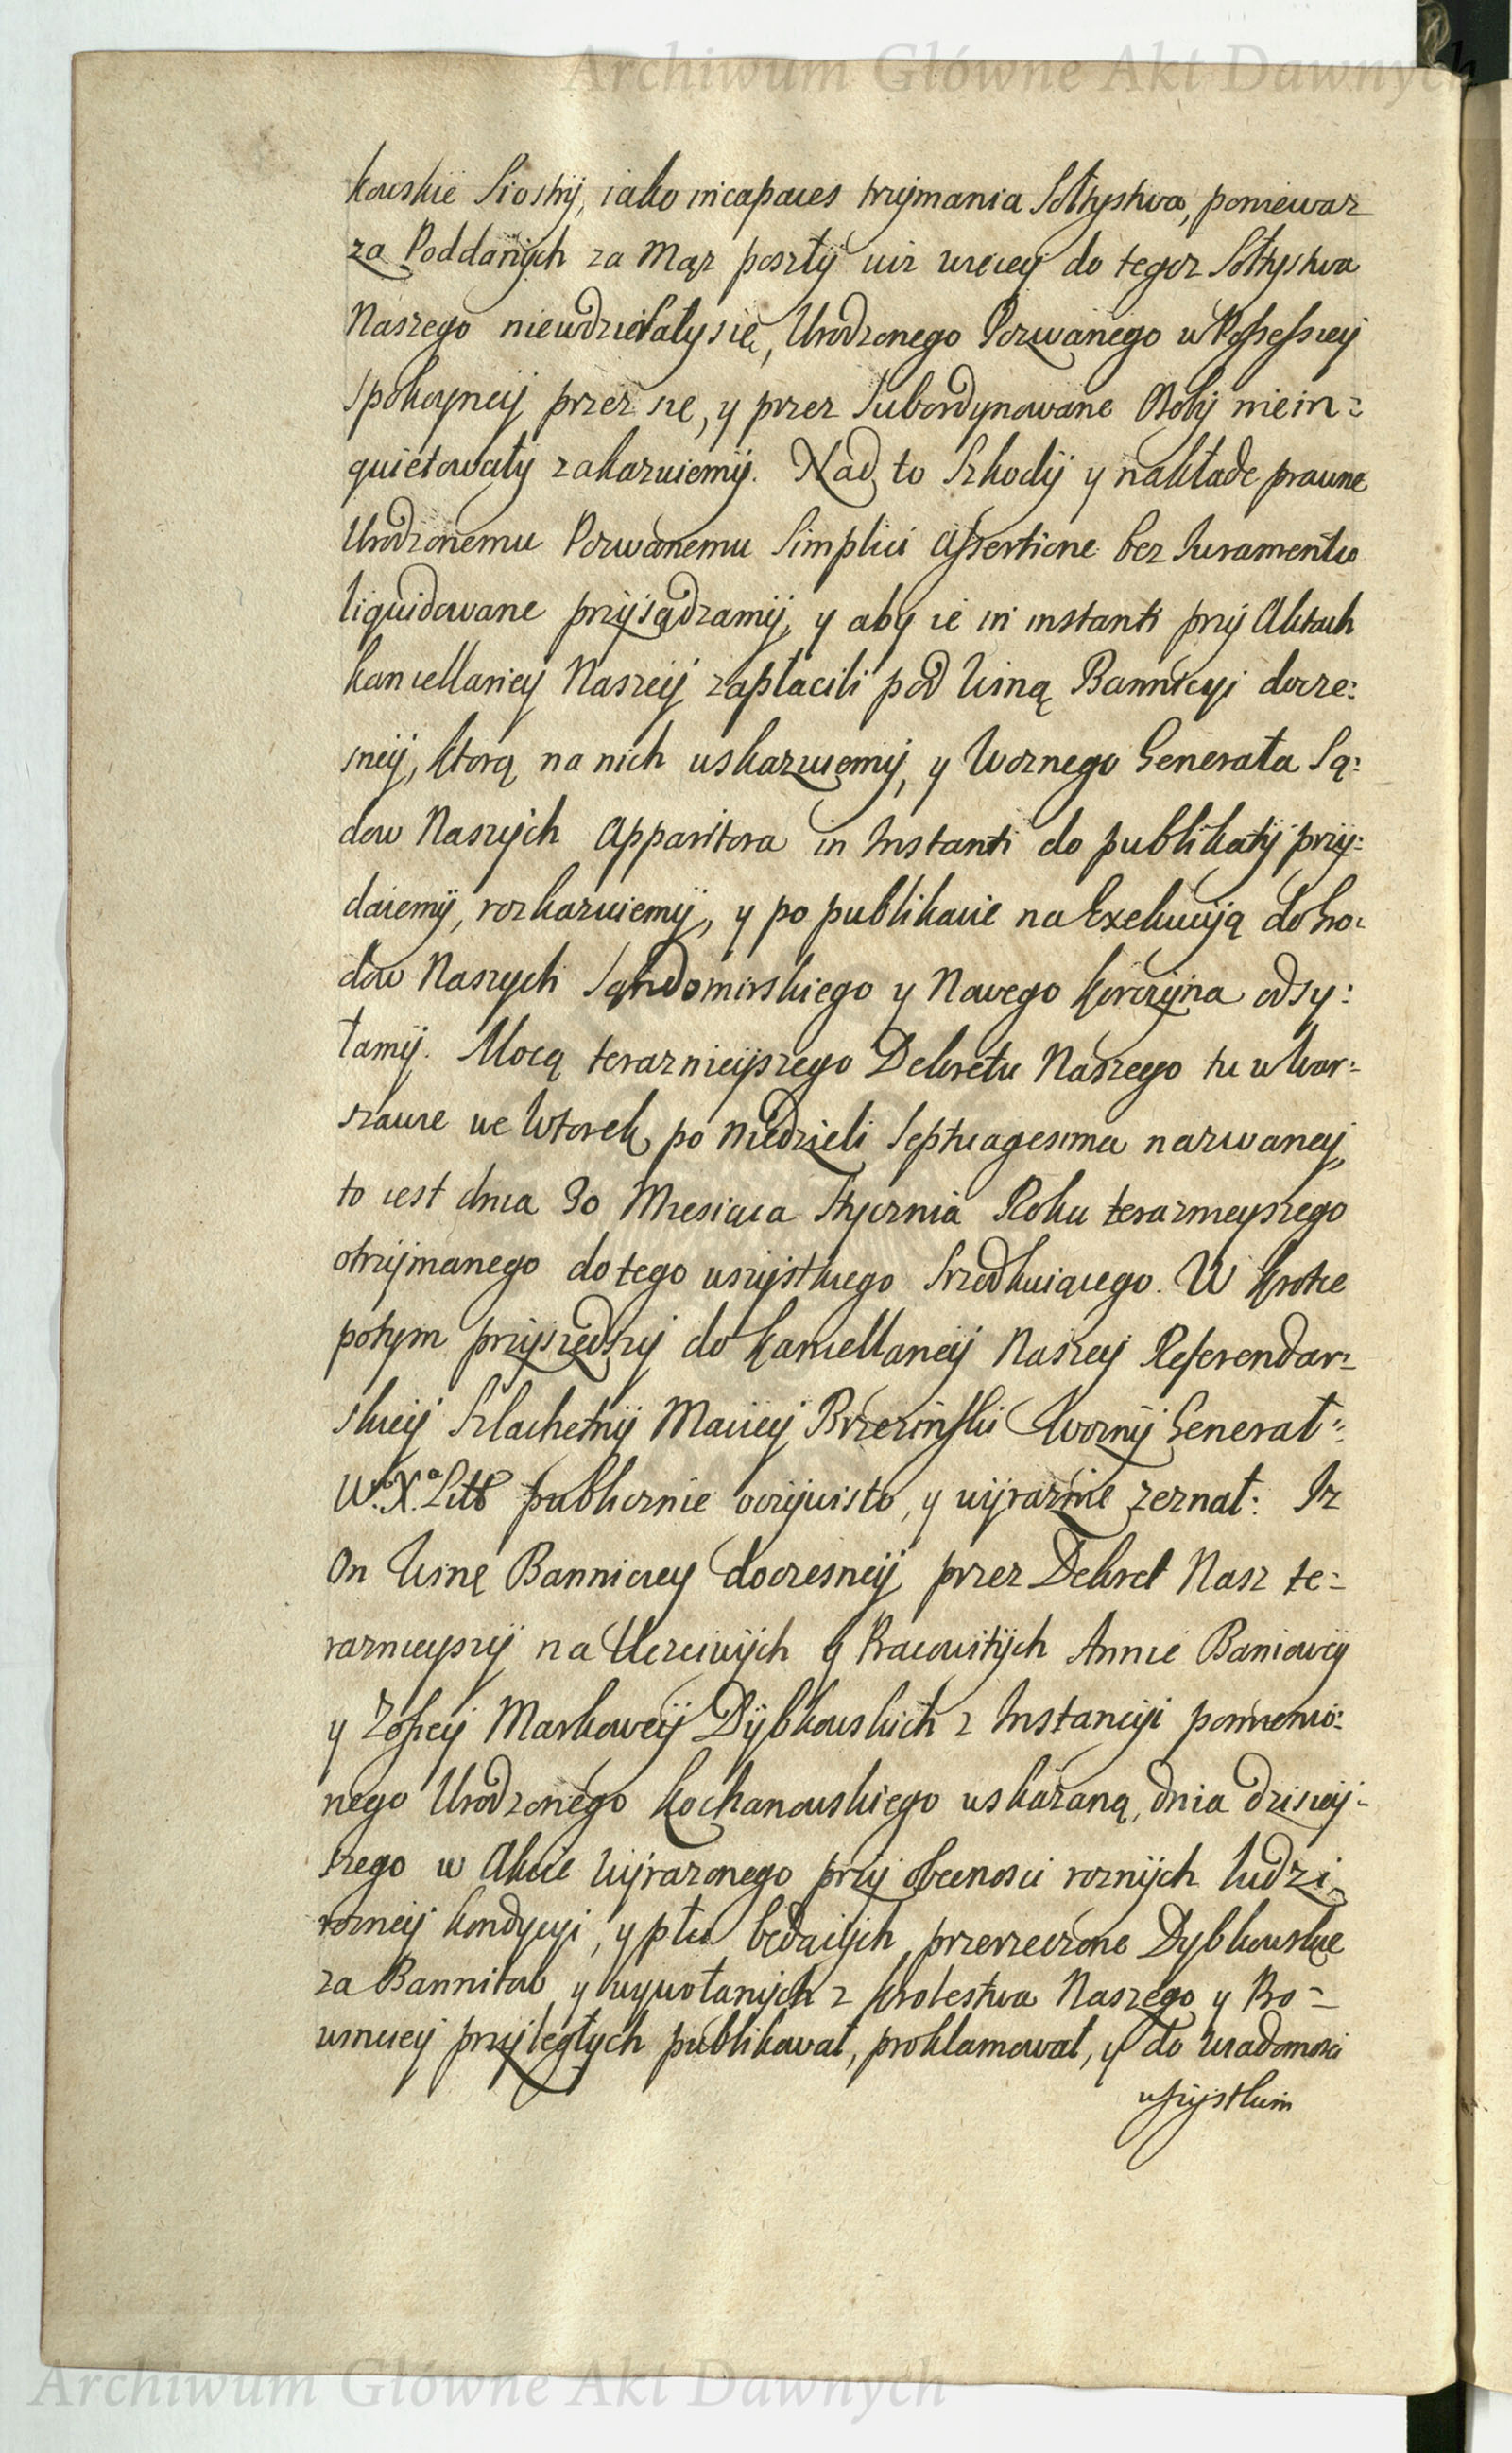 Archiwum Główne Akt Dawnych
kowskie Siostrÿ, iako incapaces trzÿmania Sołtystwa, ponieważ
za Poddanÿch za Mąż poszłÿ iuż więceÿ do tegoż Sołtystwa
Naszego niewdzierałysię, Urodzonego Pozwanego w Possessyeÿ
spokoÿneÿ przez się, y przez Subordynowane Osobÿ niein=
quietowałÿ zakazuiemÿ. Nad to Szkodÿ y nakłade prawne
Urodzonemu Pozwanemu Simplici Assertione bez Iuramentu
liquidowane przÿsądzamÿ, y aby ie in instanti przÿ Aktach
Kancellarieÿ Naszeÿ zapłacili pod Winą Bannicyi docze=
sneÿ, ktorą na nich wskazuiemÿ, y Woznego Generała Są=
dow Naszÿch Apparitora in Instanti do publikatÿ przÿ=
daiemÿ, rozkazuiemÿ, y po publikacie na Exekucÿą do Gro=
dow Naszych Sandomirskiego y Nowego Korczÿna odsy=
łamÿ. Mocą teraznieÿszego Dekretu Naszego tu w War=
szawie we Wtorek po Niedzieli Septuagesima nazwaneÿ,
to iest dnia 30 Miesiąca Stycznia Roku teraznieyszego
otrzÿmanego do tego wszÿstkiego Srzodkuiącego. W krotce
potym przÿszedszÿ do Kancellarieÿ Naszeÿ Referendar=
skieÿ Szlachetnÿ Macieÿ Brzezinski Woznÿ Generał=
W. X.º Litt publicznie oczÿwisto, y wÿraznie zeznał: Iz
On Winę Bannicyeÿ doczesneÿ przez Dekret Nasz te=
raznieyszÿ na Uczciwÿch y Pracowitÿch Annie Baniowÿ
y Zofieÿ Markoweÿ Dÿbkowskich z Instancÿi pomienio=
nego Urodzonego Kochanowskiego wskazaną, dnia dzisieÿ=
szego w Akcie wÿrazonego przÿ obecnosci roznÿch ludzi
rozneÿ kondycyi, y płci będącÿch przerzeczone Dybkowskie
za Bannitow y wywołanÿch z Krolestwa Naszego y Pro=
winCyeÿ przÿległych publikował, proklamował, y do wiadomosci
wszÿstkim
Archiwum Główne Akt Dawnych